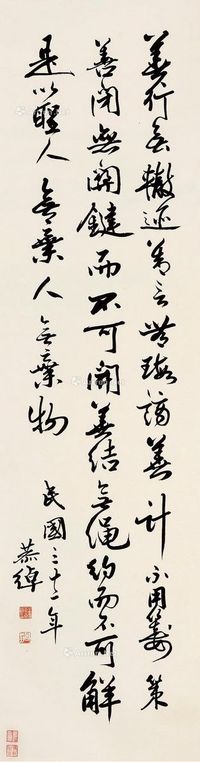 善行無轍迹善言無瑕謫善計不用籌策
善閉無關鍵而不可開善結無繩約而不可解
是以聖人無棄人無棄物
民國三十二年
恭綽